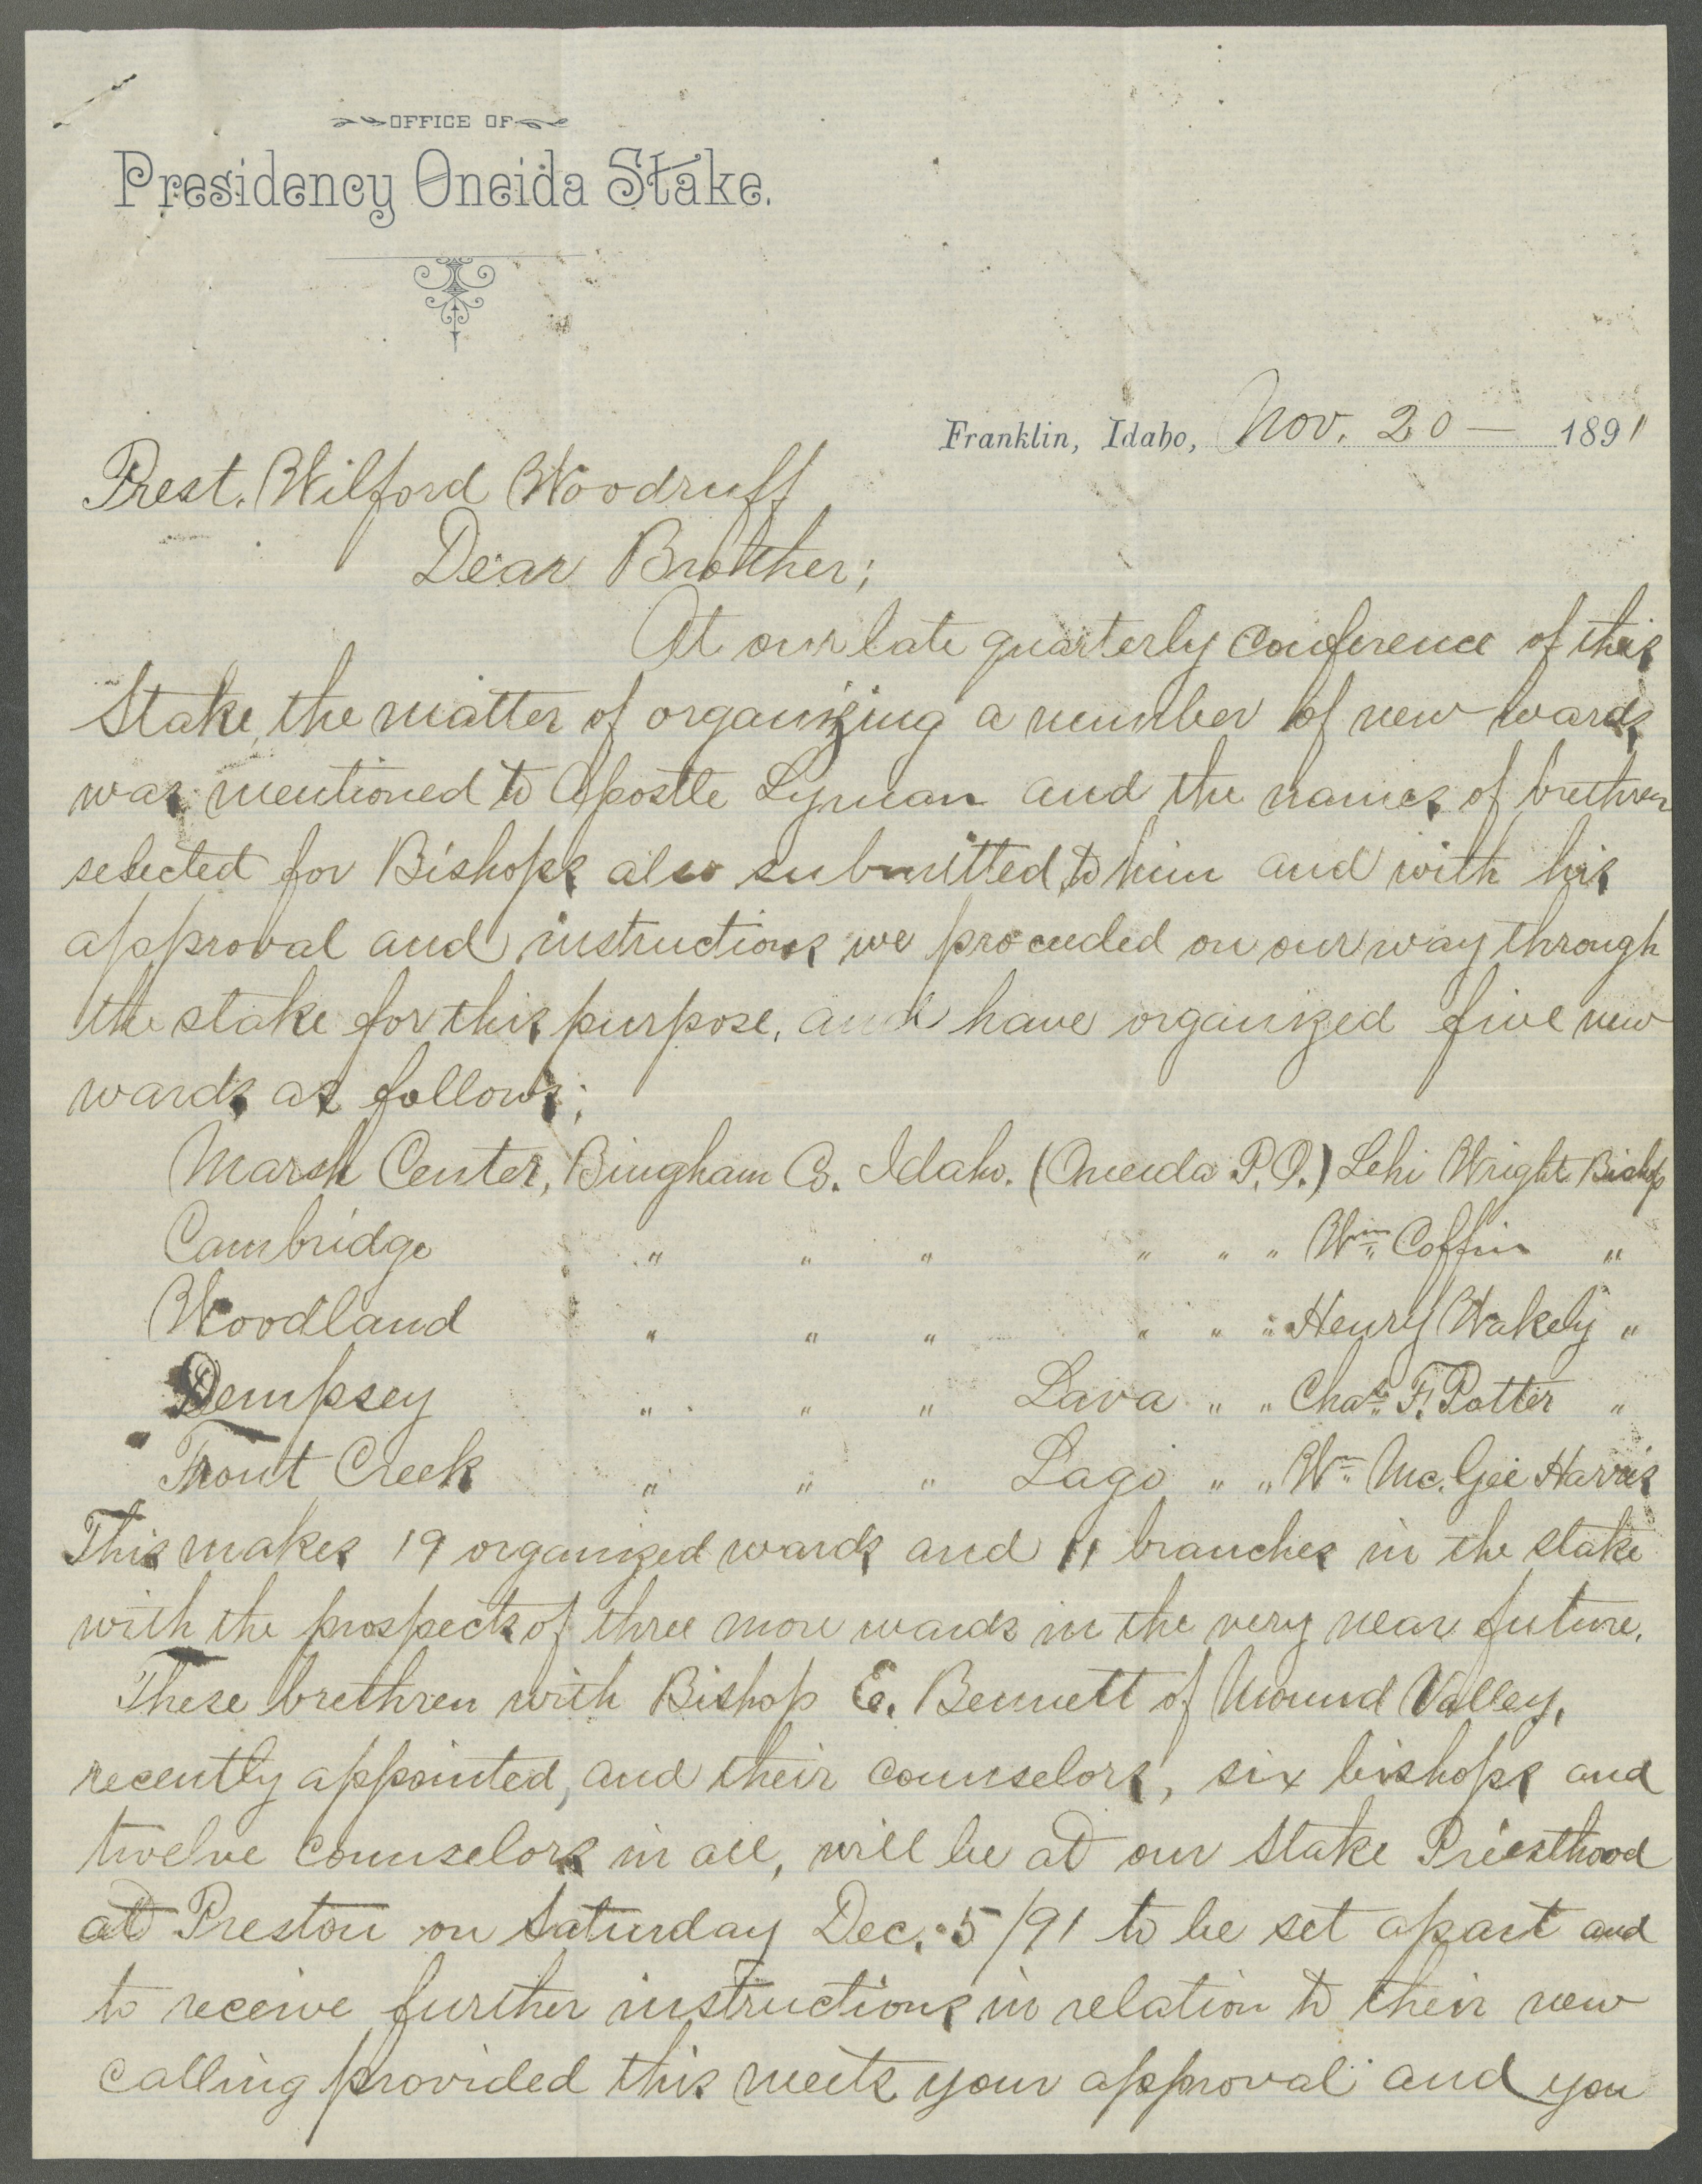 OFFICE OF
Presidency Oneida Stake.
Franklin, Idaho, Nov. 20 — 1891
Prest. Wilford Woodruff
Dear Brother;
At our late quarterly conference of this
Stake, the matter of organizing a number of new wards
was mentioned to Apostle Lyman and the names of brethren
selected for Bishops also submitted to him and with his
approval and instructions we proceeded on our way through
the stake for this purpose, and have organized five new
wards as follows;
Marsh Center, Bingham Co. Idaho. (Oneida P.O.) Lehi Wright Bishop
Cambridge " " " " " " Wm. Coffin "
Woodland " " " " " " Henry Wakely "
Dempsey " " " Lava " " Chas. F. Potter "
Trout Creek " " " Lago " " Wm. Mc.Gee Harris
This makes 19 organized wards and 11 branches in the stake
with the prospects of three more wards in the very near future.
These brethren with Bishop E. Bennett of Mound Valley,
recently appointed, and their counselors, six bishops and
twelve counselors in all, will be at our Stake Priesthood
at Preston on Saturday Dec. 5/91 to be set apart and
to receive further instructions in relation to their new
calling provided this meets your approval and you